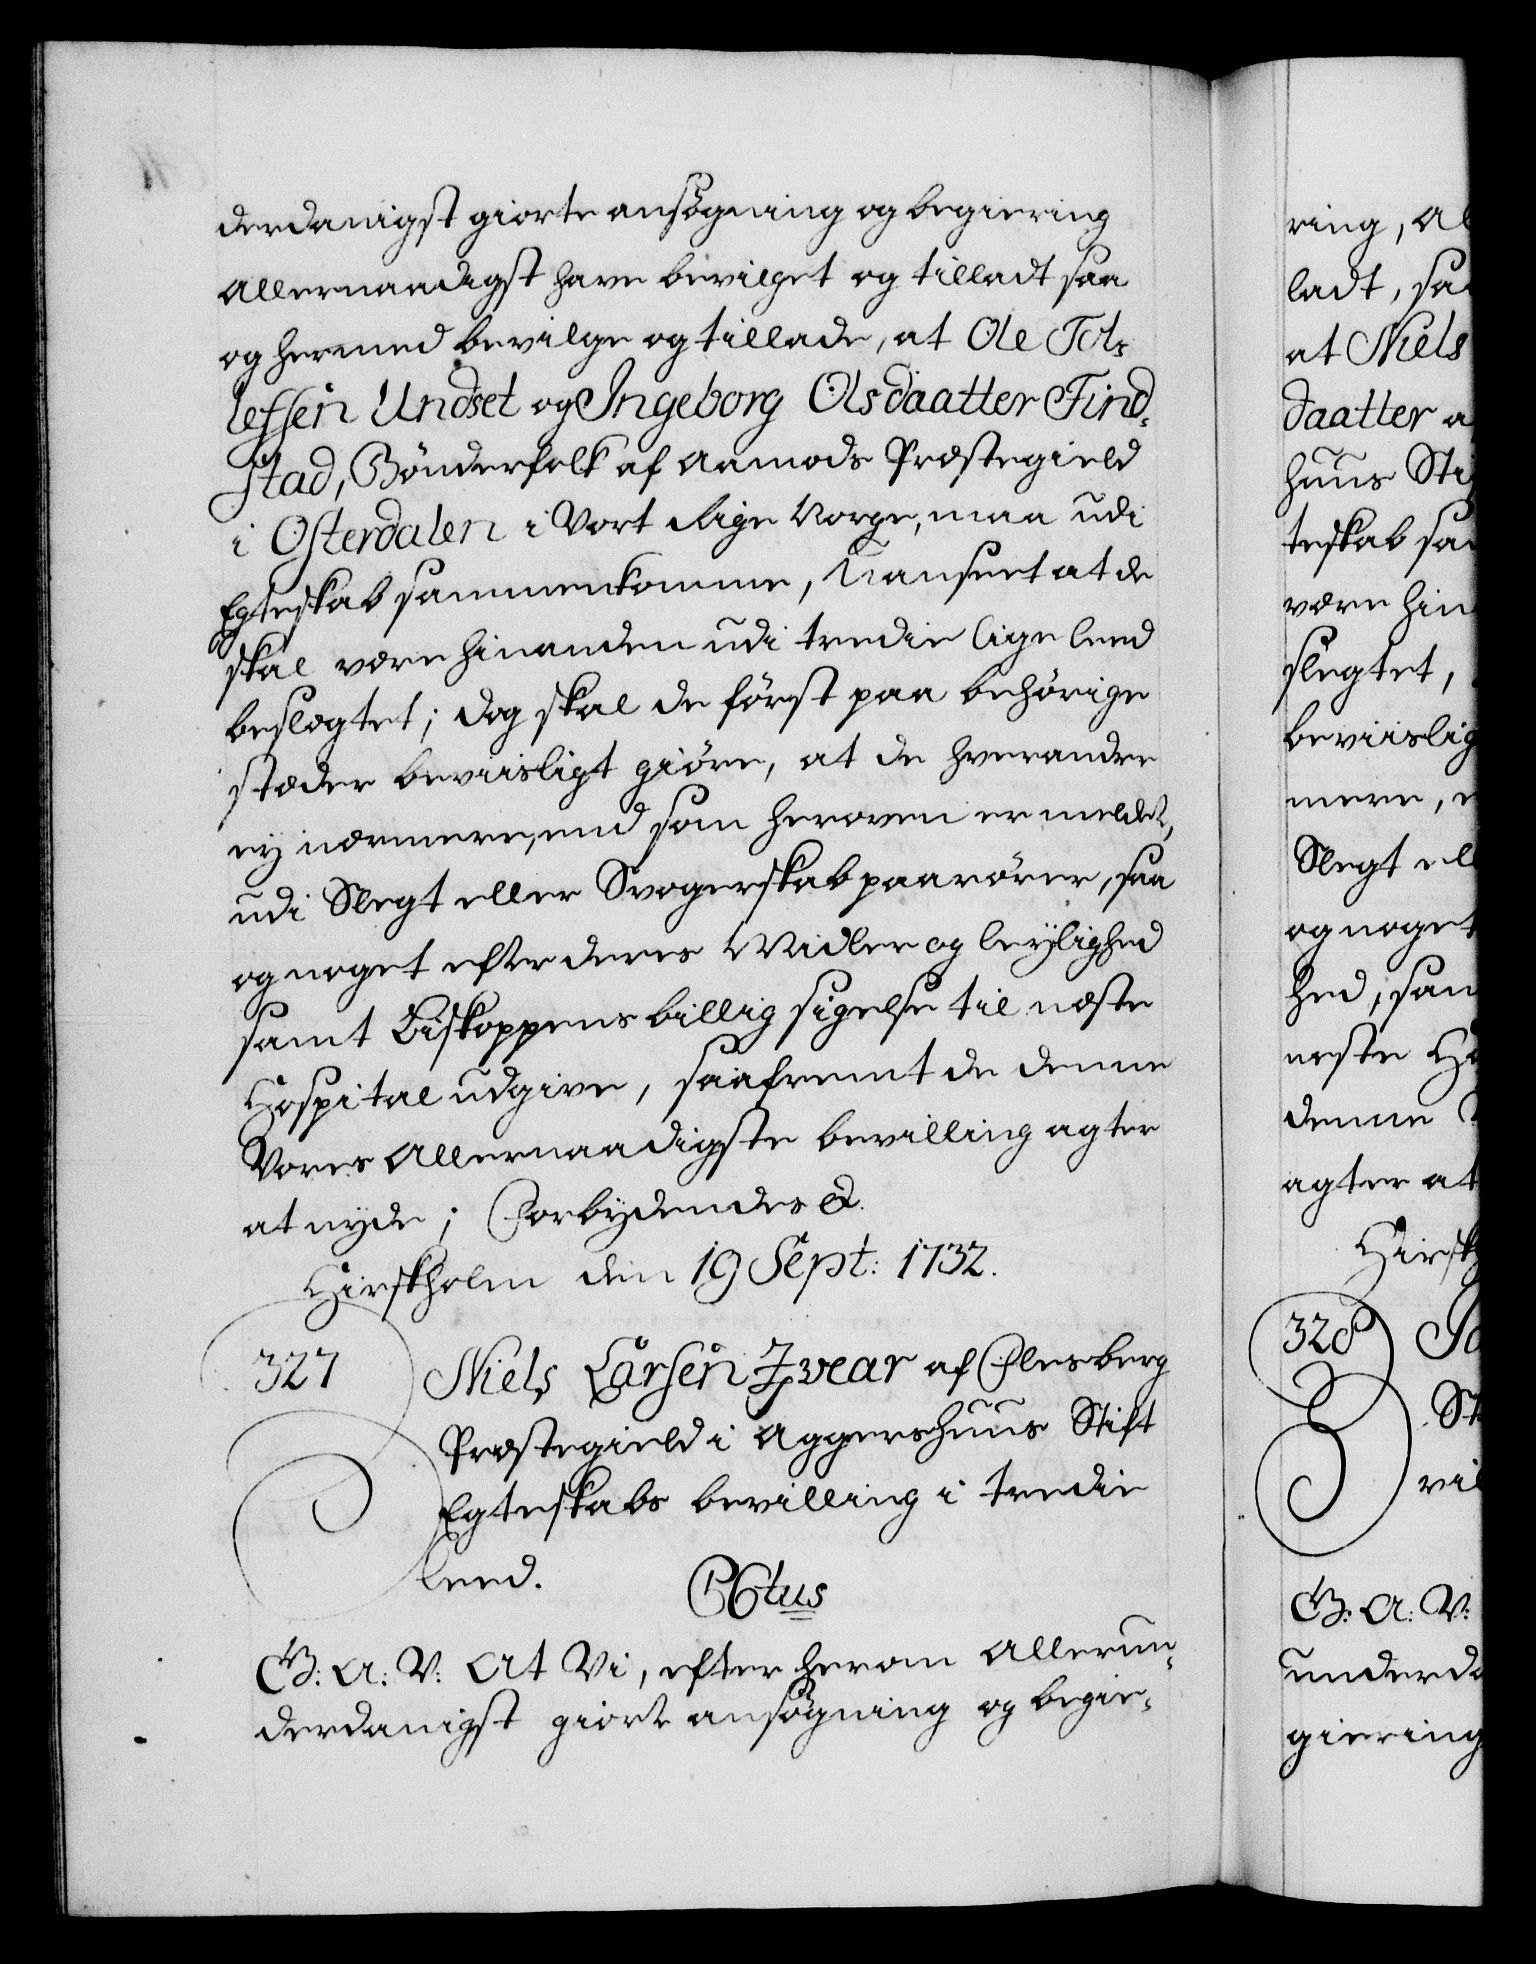 derdanigst giorte ansøgning og begiering
allernaadigst have bevilget og tilladt saa
og hermed bevilge og tillade, at Ole Tol-
lefssen Undset og Ingeborg Olsdaatter Find-
stad, Bönderfolk af Aamods Præstegield
i Osterdalen i Vort Rige Norge, maa udi
Egteskab sammenkomme, Uanseet at de
skal være hinanden udi tredie lige leed
beslægtet; dog skal de först paa behörige
stæder beviisligt giöre, at de hverandre
ej nærmere, end som heroven er meldt,
udi Slegt eller Svogerskab paarörer, saa
og noget efter deres Midler og leylighed
samt Biskoppens billig sigelse til næste
Hospital udgive, saafremt de denne
Vores Allernaadigste bevilling agter
at nyde; Forbydendes &.
Hirskholm den 19 Sept: 1732.
327 Niels Larsen Zvear af Flesberg
Præstegield i Aggershuus Stift
Egteskabs bevilling i tredie
leed.
C6tus
G: A: V: At Vi, efter herom Allerun-
derdanigst giort ansögning og begie-
ring, Al
ladt, saa
at Niels
daatter a
huus Stif
teskab sa
være hin
slegtet,
beviislig
mere, e
Slegt ell
og noget
hed, sam
neste Ho
denne
agter at
Hirsk
328
St
vil
G: A: V:
underda
giering